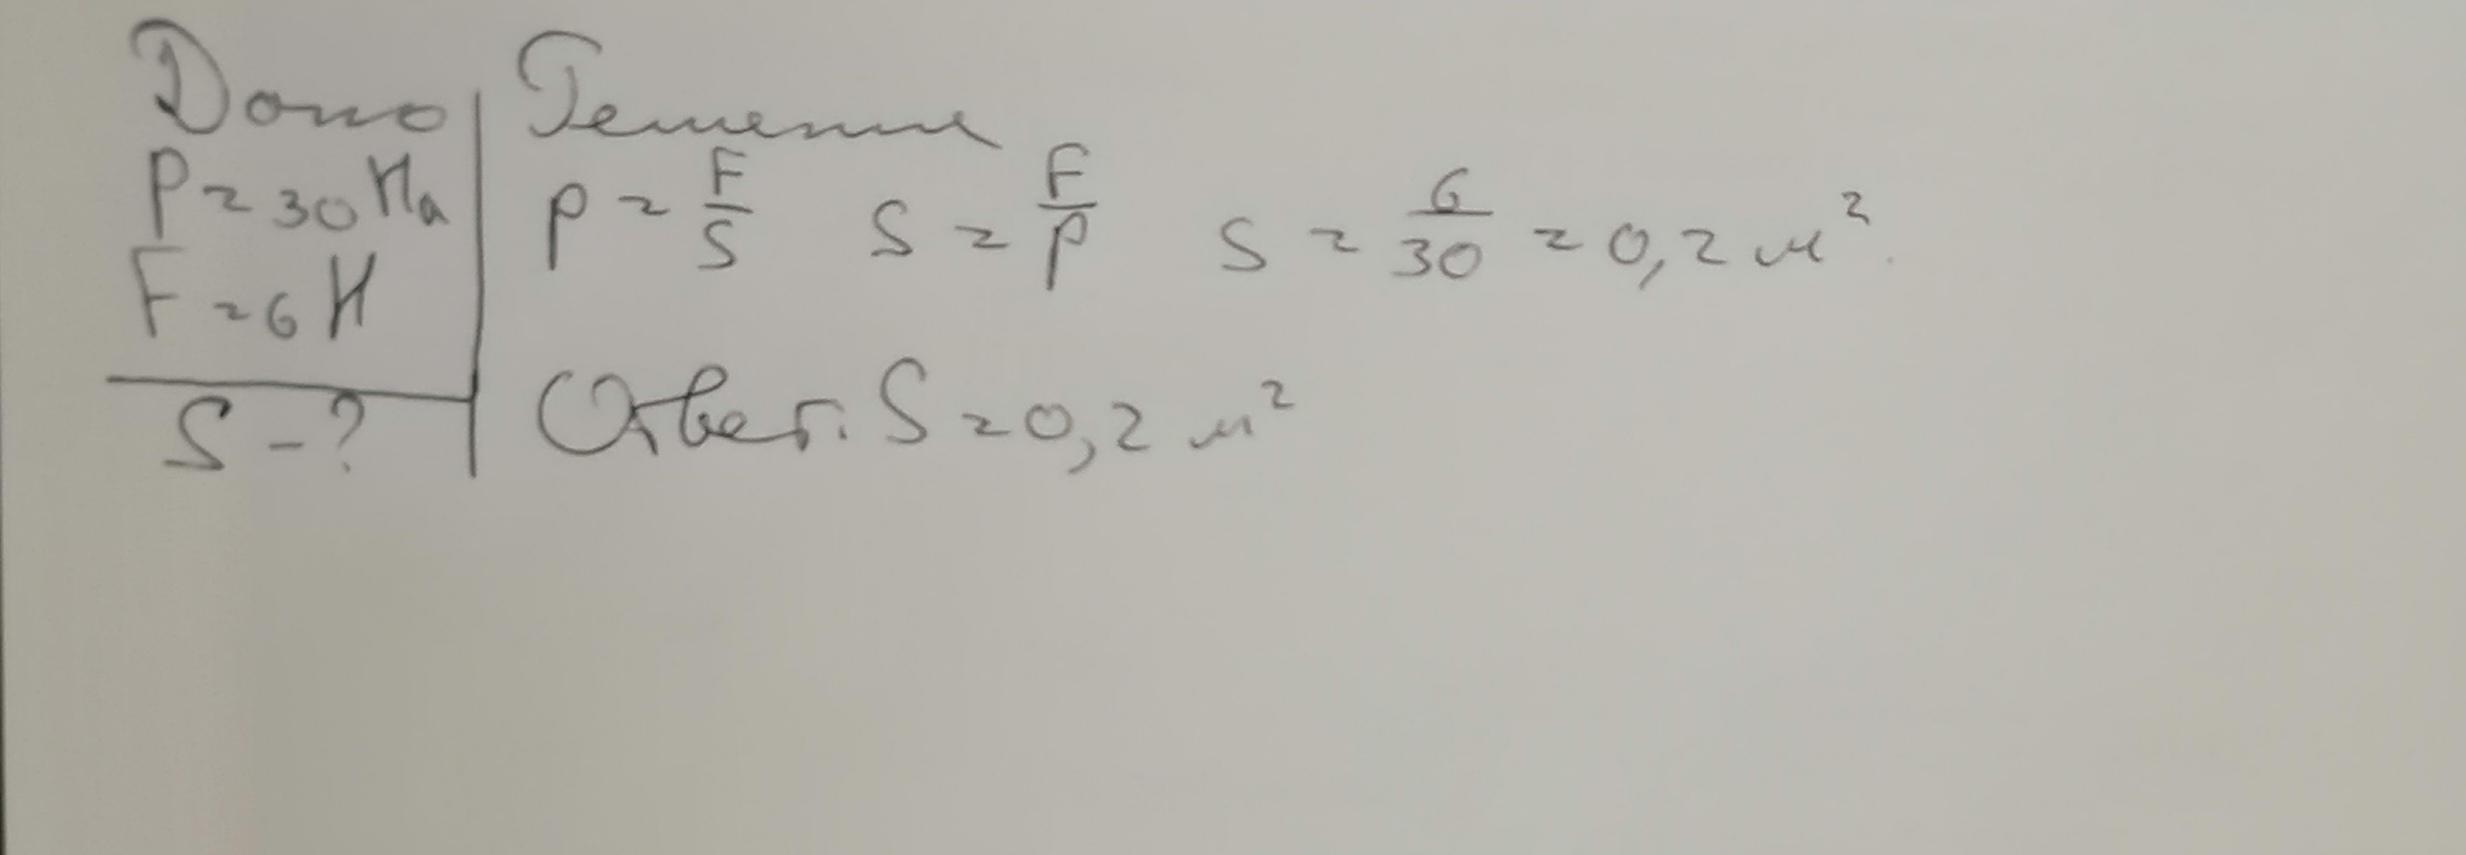 Дано
P = 30 Па
F = 6 Н
S - ?
Решение
p = F/S S = F/p S = 6/30 = 0,2 м².
Ответ: S = 0,2 м²